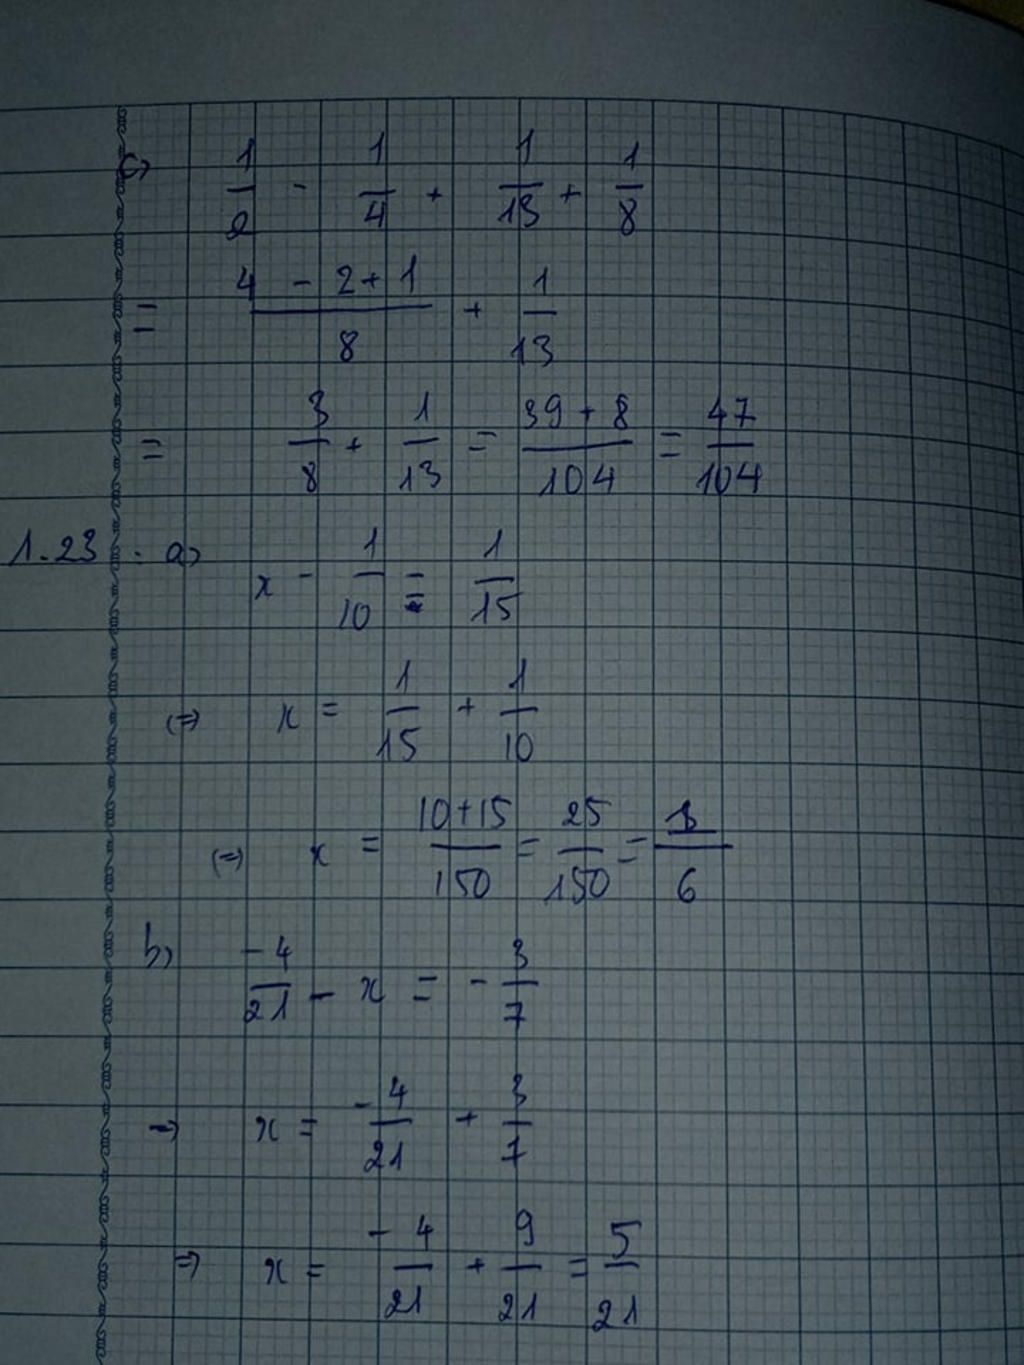 c) 1/2 - 1/4 + 1/13 + 1/8
= (4 - 2 + 1)/8 + 1/13
= 3/8 + 1/13 = (39 + 8)/104 = 47/104
1.23 : a) x - 1/10 = 1/15
(=) x = 1/15 + 1/10
(=) x = (10+15)/150 = 25/150 = 1/6
b) -4/21 - x = - 3/7
=) x = -4/21 + 3/7
=) x = -4/21 + 9/21 = 5/21